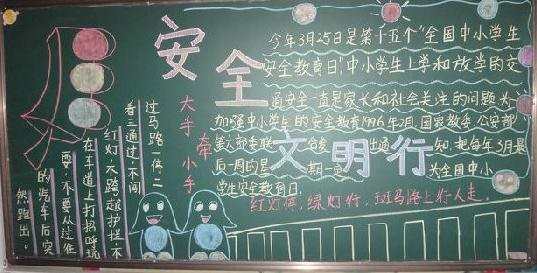 安全
文明行
大手牵小手
今年3月25日是第十五个"全国中小学生
安全教育日"中小学生上学和放学的交
通安全一直是家长和社会关注的问题为
加强中小学生的安全教育1996年2月国家教委公安部
知,把每年3月是
后一周的星 期一 为全国中小
学生安全教育日.
红灯停,绿灯行,斑马路上行人走.
过马路一停,二
看三通过,不闯
红灯,不跨越护栏,不
在车道上打扔呼玩
耍,不要从过往
的汽车后突
然跑出。